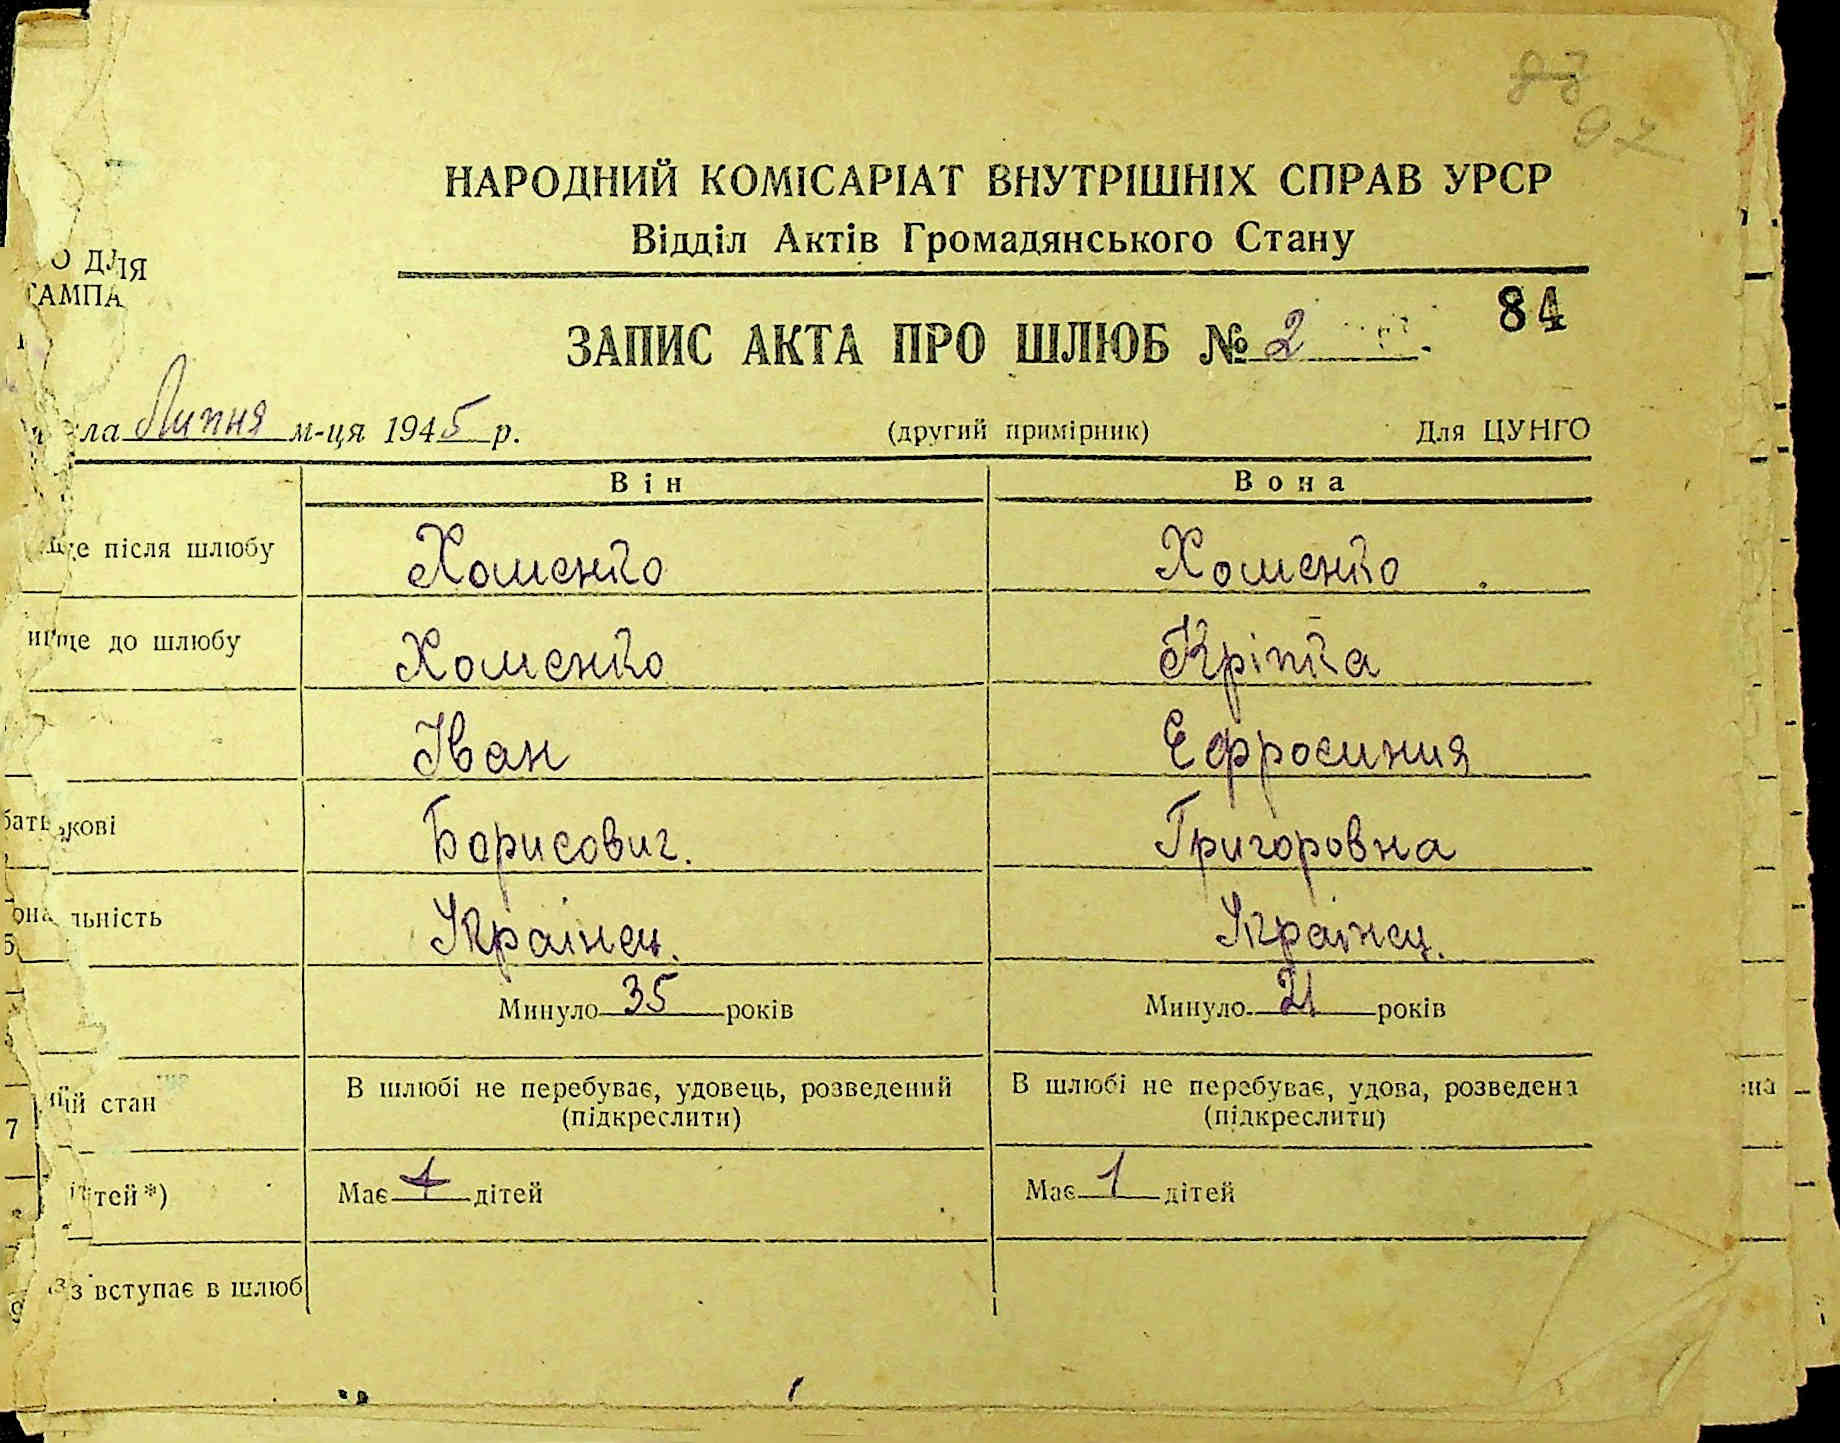 97
НАРОДНИЙ КОМІСАРІАТ ВНУТРІШНІХ СПРАВ УРСР
Відділ Актів Громадянського Стану
О ДЛЯ
ТАМПА
84
ЗАПИС АКТА ПРО ШЛЮБ № 2
ла Липня м-ця 1945 р. (другий примірник) Для ЦУНГО
Він Вона
ще після шлюбу Хоменко Хоменко
ище до шлюбу Хоменко Кріпка
Іван Ефросиния
батькові Борисович. Григоровна
ональність Украінец. Украінец.
Минуло 35 років Минуло 21 років
ий стан В шлюбі не перебуває, удовець, розведений В шлюбі не перебуває, удова, розведена
(підкреслити) (підкреслити)
7
ітей*) Має дітей Має 1 дітей
з вступає в шлюб